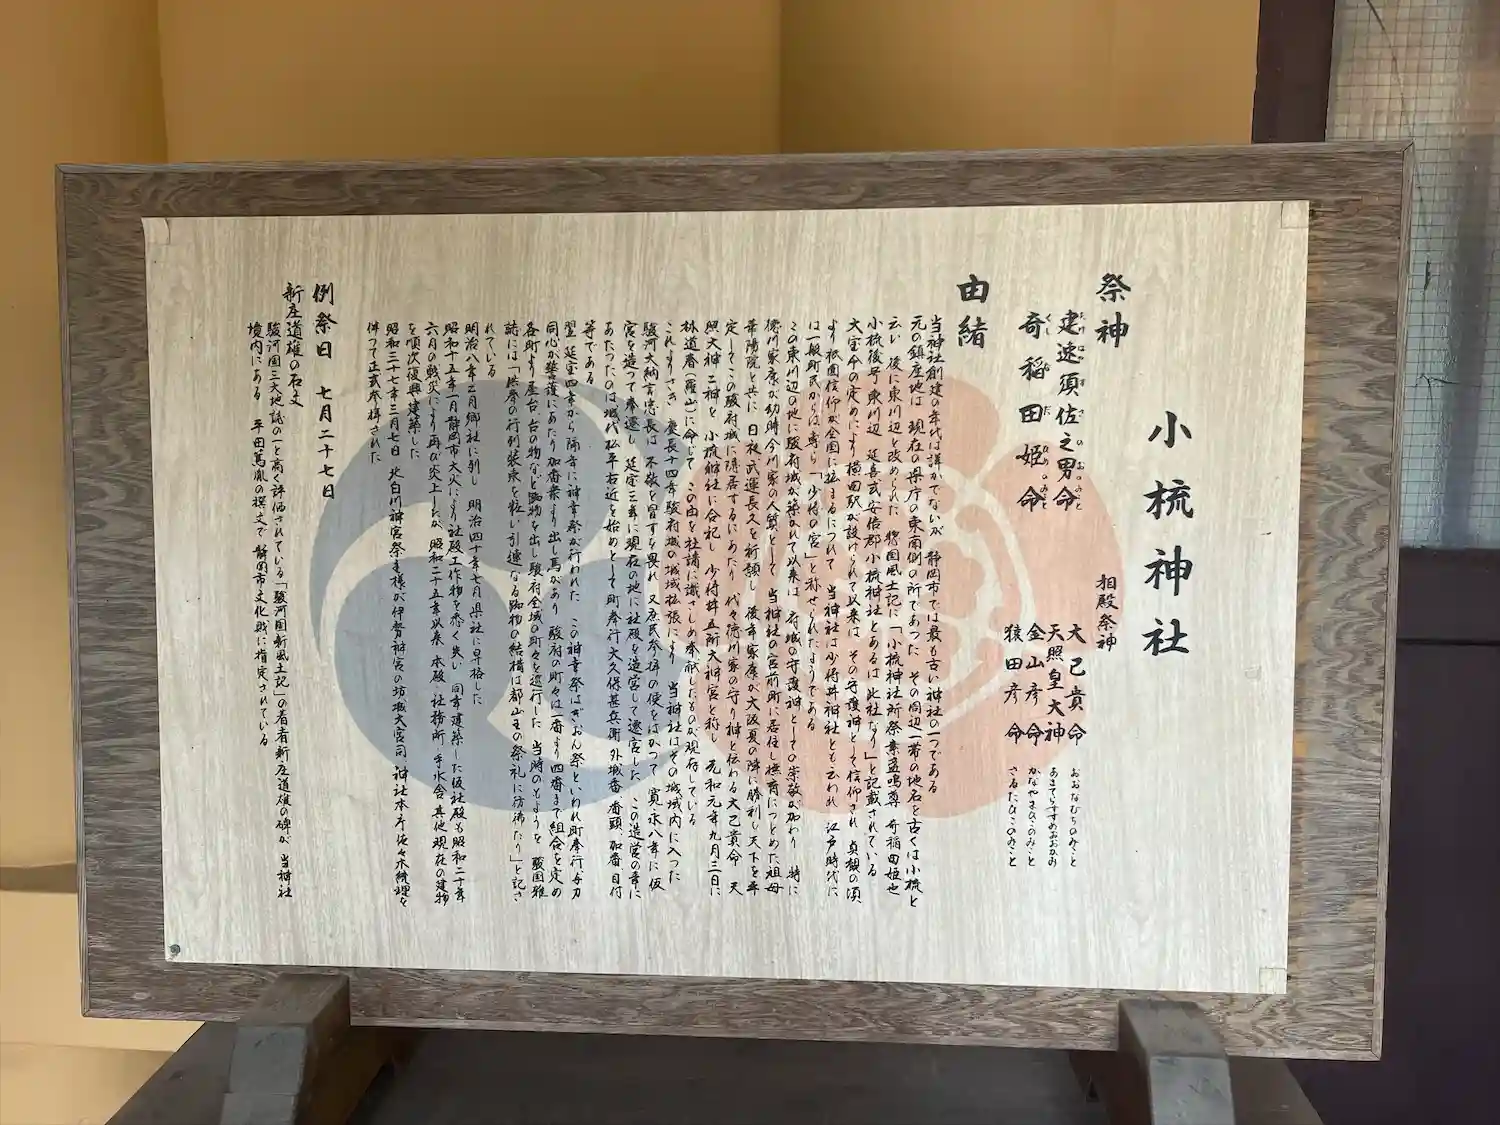 小梳神社
祭神
建速須佐之男命
たけはやすさのおのみこと
奇稲田姫命
くしいなだひめのみこと
相殿祭神
大己貴命 おおなむちのみこと
天照皇大神 あまてらすすめおおかみ
金山彦命 かなやまひこのみこと
猿田彦命 さるたひこのみこと
由緒
当神社創建の年代は詳かでないが 静岡市では最も古い神社の一つである
元の鎮座地は 現在の県庁の東南側の所であった その周辺一帯の地名を古くは小梳と
云い 後に東川辺と改められた 惣国風土記に「小梳神社所祭素盞嗚尊 奇稲田姫也
小梳後号東川辺 延喜式安倍郡小梳神社とあるは此社なり」と記載されている
大宝令の定めにより横田駅が設けられて以来は その守護神として信仰され 貞観の頃
より祇園信仰が全国に拡まるにつれて 当神社は少将井神社とも云われ 江戸時代に
は一般町民からは専ら「少将の宮」と称せられたようである
この東川辺の地に駿府城が築かれて以来は 府城の守護神としての崇敬が加わり 特に
徳川家康が幼時今川家の人質として 当神社の宮前町に居住し撫育につとめた祖母
華陽院と共に 日夜武運長久を祈願し 後年家康が大阪夏の陣に勝利し天下を平
定してこの駿府城に隠居するにあたり 代々徳川家の守り神と伝わる大己貴命 天
照大神二神を 小梳神社に合祀し 少将井五所大神宮と称し 元和元年九月三日に
林道春(羅山)に命じて この由を社譜に識さしめ奉献したものが現存している
これよりさき 慶長十四年駿府城の城域拡張により 当神社はその城域内に入った
駿河大納言忠長は 不敬を冒すを畏れ 又庶民参拝の便をはかって 寛永八年に仮
宮を造って奉遷し 延宝三年に現在の地に社殿を造営して遷宮した この造営の年に
あたったのは城代松平右近を始めとして町奉行大久保甚兵衛 外城番番頭、加番目付
等である
翌 延宝四年から隔年に神幸祭が行われた この神幸祭はぎおん祭といわれ町奉行 与力
同心が警護にあたり加番衆より出し馬があり 駿府の町々は一番より四番まで組合を定め
各町より屋台 台の物など踟物を出し駿府全域の町々を巡行した 当時のもようを 駿国雅
誌には「供奉の行列装束を粧い引連なる踟物の結構は都山王の祭礼に彷彿たり」と記さ
れている
明治八年二月郷社に列し 明治四十年七月県社に昇格した
昭和十五年一月静岡市大火により社殿工作物を悉く失い 同年建築した仮社殿も昭和二十年
六月の戦災により再び炎上したが 昭和二十五年以来 本殿 社務所 手水舎 其他現在の建物
を順次復興建築した
昭和三十七年三月七日 北白川神宮祭主様が伊勢神宮の坊城大宮司 神社本庁佐々木統理を
伴って正式参拝された
例祭日 七月二十七日
新庄道雄の石文
駿河国三大地誌の一と高く評価されている「駿河国新風土記」の著者新庄道雄の碑が 当神社
境内にある 平田篤胤の撰文で 静岡市文化財に指定されている